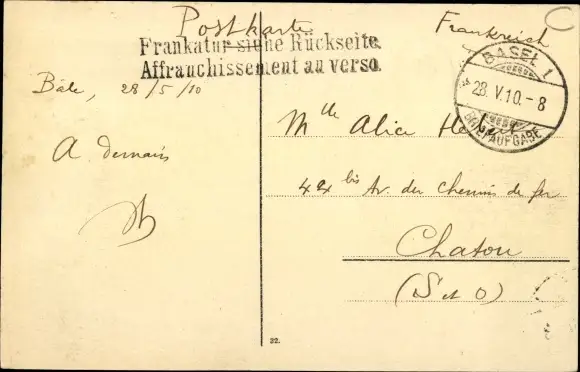 Postkarte
Frankreich
C
Frankatur siehe Rückseite.
Affranchissement au verso.
BASEL 1
28.V.10.-8
BRIEFAUFGABE
Bâle, 28/5/10
A demain
Mlle Alice
44 bis Av. du Chemin de fer
Chatou
(S et O)
32.